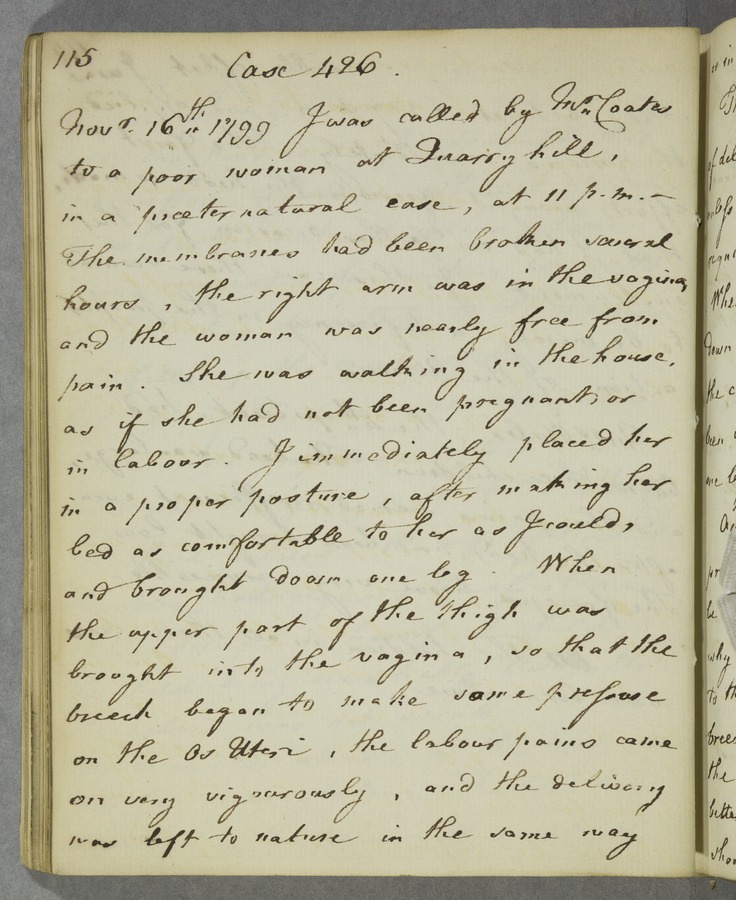 115
Case 426.
Novr. 16th 1799 I was called by Mr Coates
to a poor woman at Quarry hill,
in a preternatural case, at 11 p.m.-
The membranes had been broken several
hours, the right arm was in the vagina,
and the woman was nearly free from
pain. She was walking in the house,
as if she had not been pregnant, or
in labour. I immediately placed her
in a proper posture, after making her
bed as comfortable to her as I could,
and brought down one leg. When
the upper part of the thigh was
brought into the vagina, so that the
breech began to make some preſsure
on the Os Uteri, the labour pains came
on very vigourously, and the delivery
was left to nature in the same way